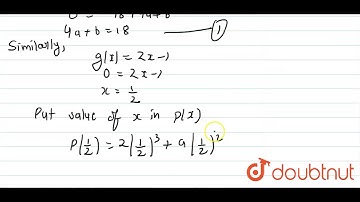 9a + b = 18 ——— (1)
Similarly,
g(x) = 2x-1
0 = 2x-1
x = 1/2
Put value of x in p(x)
P(1/2) = 2(1/2)³ + a(1/2)²
doubtnut